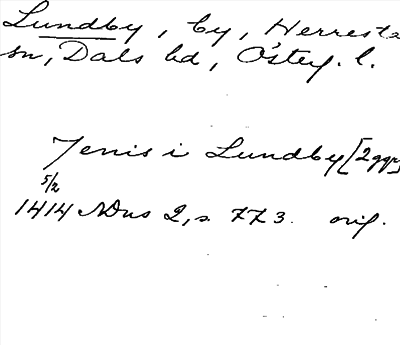 Lundby, by, Herresta
sn, Dals hd, Österg. l.
Jenis i Lundby [2 ggr]
5/2
1414 NDns 2, s. 773. orig.